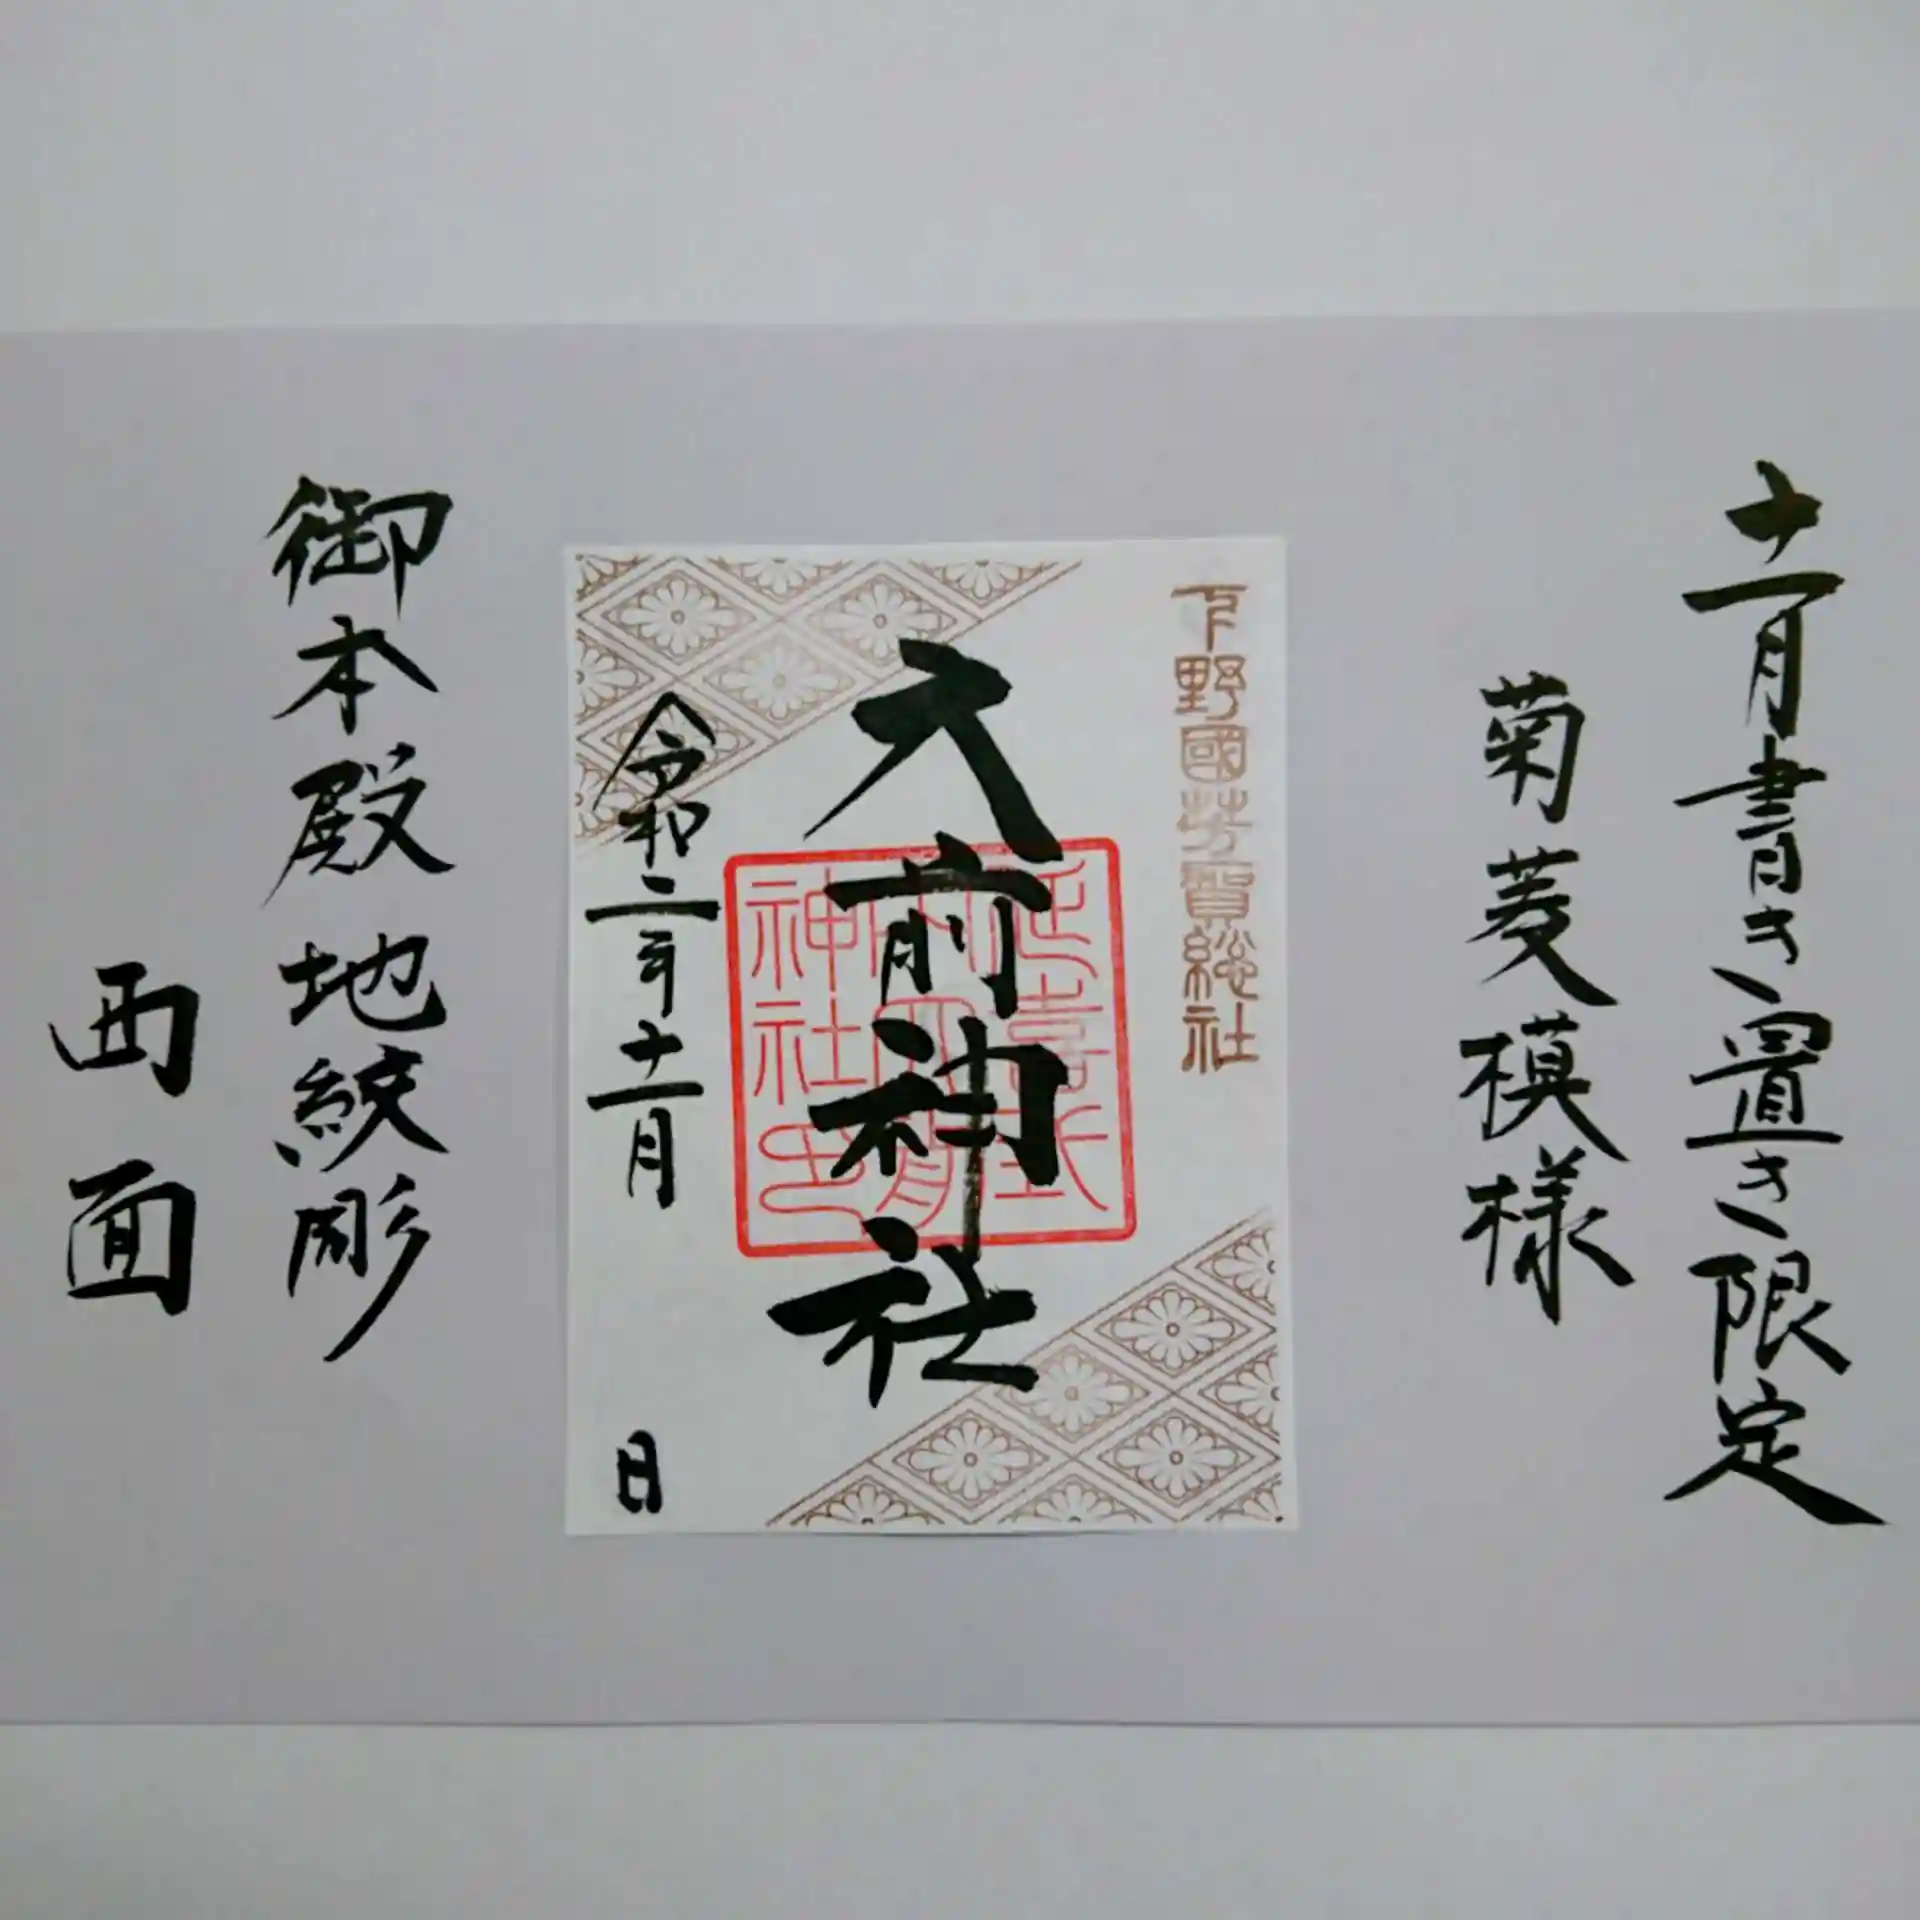 十一月書き置き限定
菊菱模様
下野國芳賀総社
大前神社
延喜式
内大前
神社印
令和二年十一月
日
御本殿地紋彫
西面